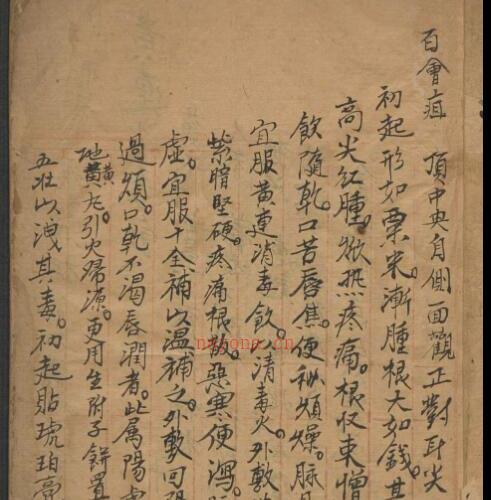 百會疽 頂中央自側面觀正對耳尖
初起形如粟米漸腫根大如錢甚
高尖紅腫。掀热疼痛。根收束憎
飲隨乾。口苦唇焦。便秘煩燥。脉
宜服黄連消毒飲。以清毒火。外敷
紫暗堅硬。疼痛根散。惡寒便瀉。
虛。宜服十全補以温補之。外敷回陽
過煩。口乾不渴。唇潤者。此属陽虛
地黃丸。引火歸源。更用生附子餅置
五壯以洩其毒。初起貼琥珀膏
nayona.cn